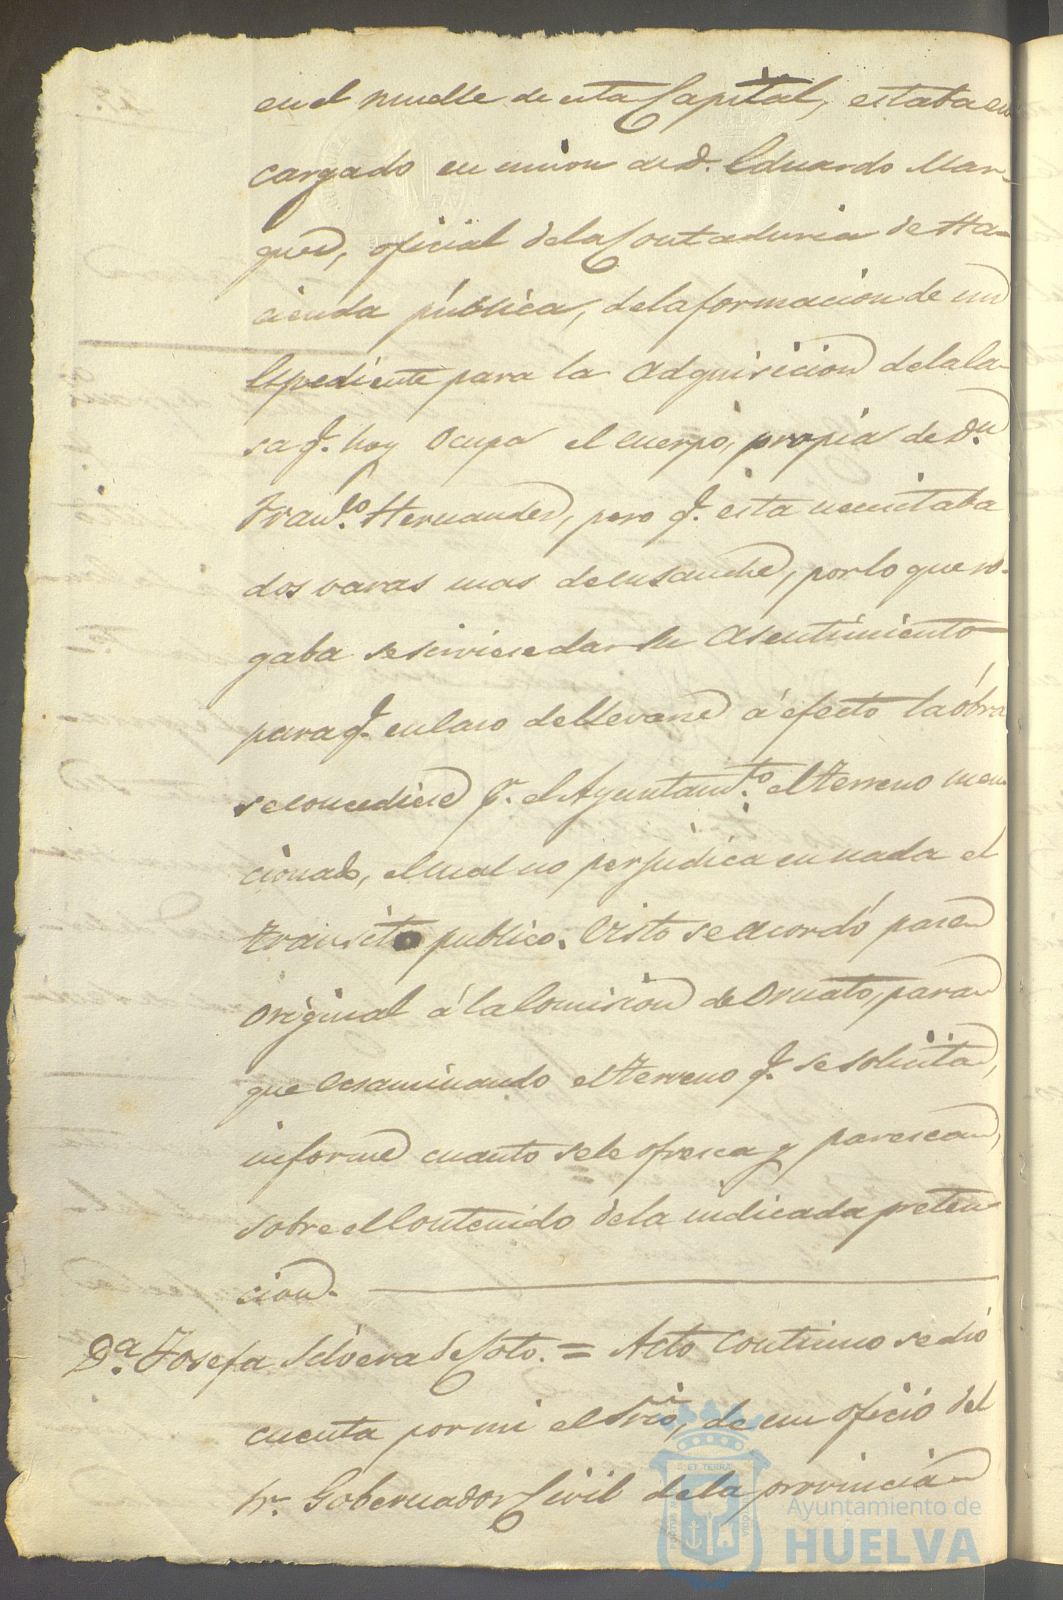 en el muelle de esta Capital, estaba en
cargado en union de D. Eduardo Mar-
quez, oficial de la Contaduria de Ha-
cienda pública, de la formacion de un
Espediente para la adquisicion de la Ca-
sa q.e hoy ocupa el cuerpo, propia de D.n
Fran.co Hernandez, pero q.e esta necesitaba
dos varas mas de ensanche, por lo que ro-
gaba se sirviese dar su asentimiento
para q.e en caso de llevarse á efecto la óbra
se concediese p.r el Ayuntam.to el terreno men
cionado, el cual no perjudica en nada el
transito publico. Visto se acordó pase
original á la Comision de Ornato, para
que ecsaminando el terreno q.e se solicita,
informe cuanto se le ofresca y paresca,
sobre el Contenido de la indicada preten
cion.
D.a Josefa Silvera de Soto. = Acto Continuo se dió
cuenta por mi el Srio, de un oficio del
Sr. Gobernador Civil de la provincia
ET TERRA
Ayuntamiento de
HUELVA